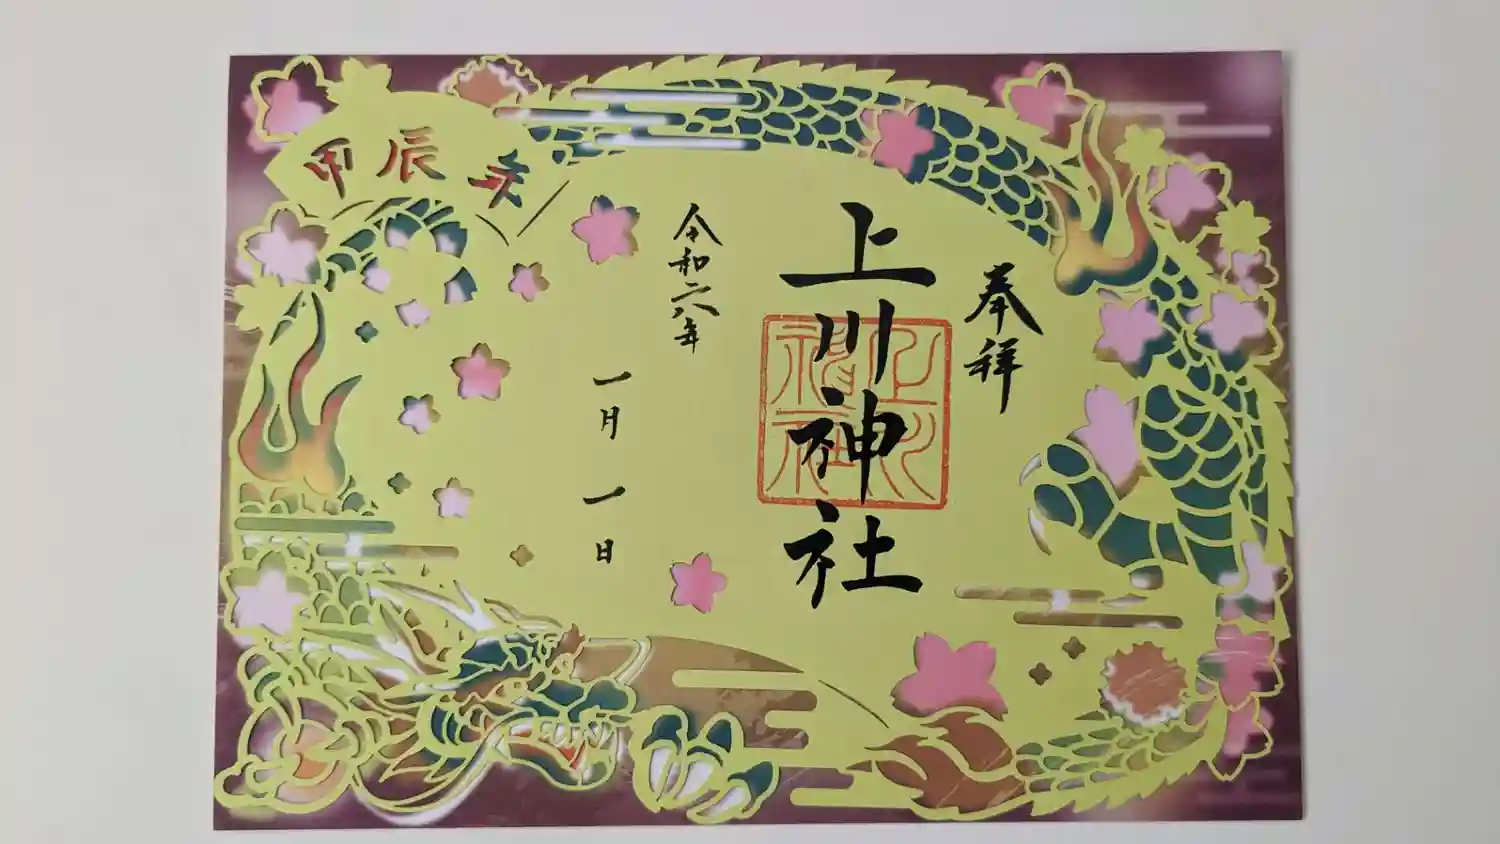 奉拝
上川神社
令和六年
一月一日
甲辰年
上川神社